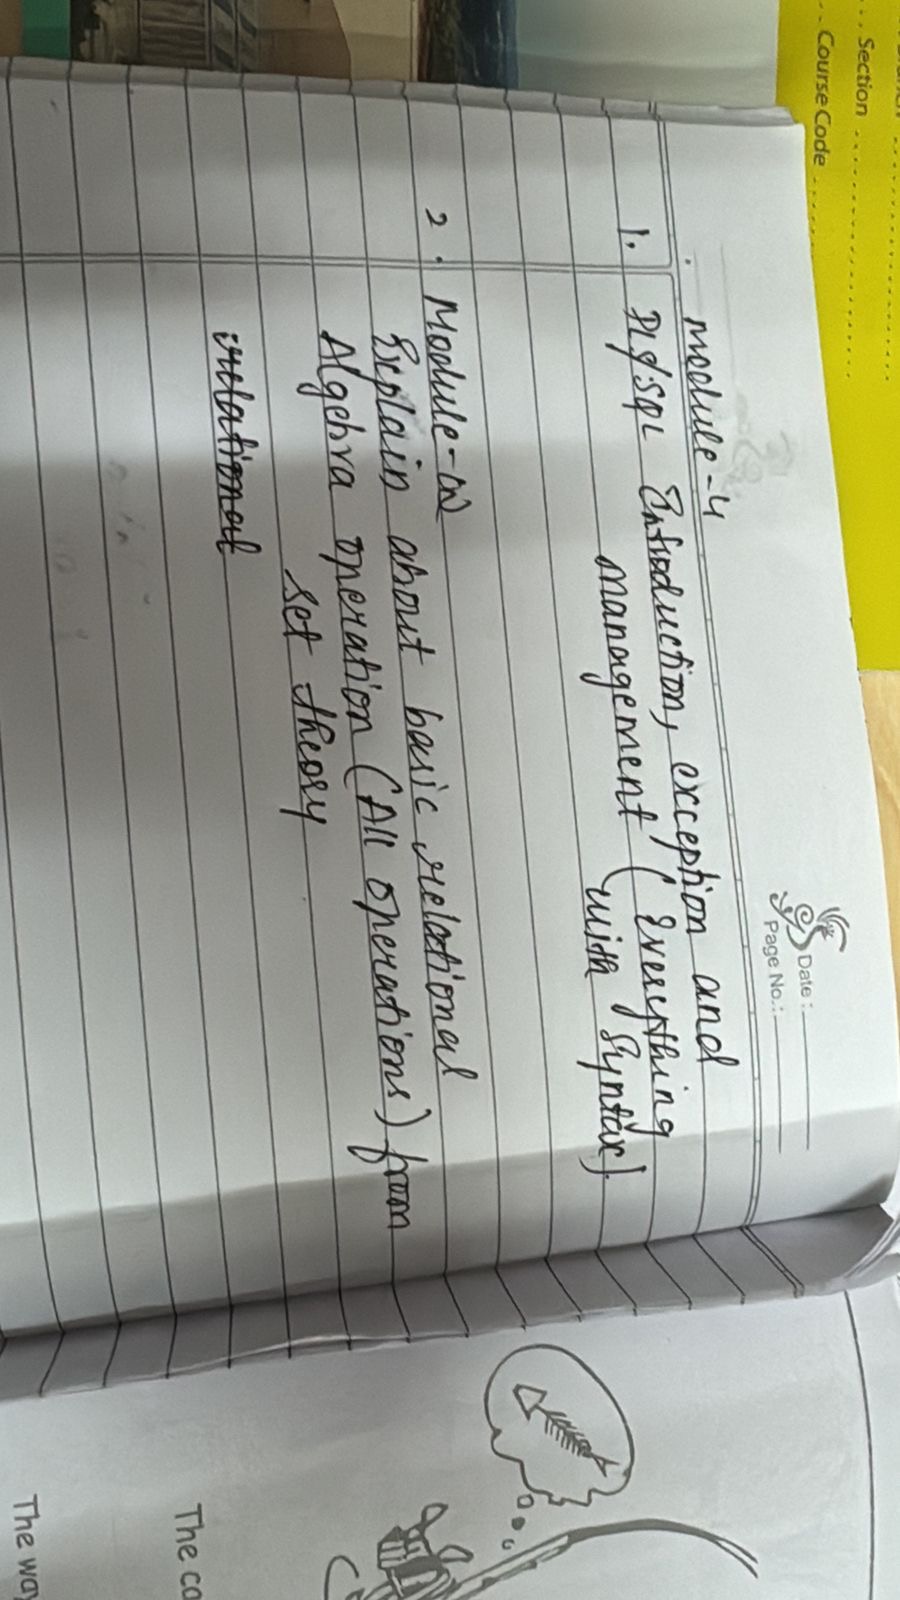 Section
Course Code
Date :
Page No.:
Module-4
1. Pl/SQL Introduction, exception and
management (Everything
with Syntax).
2. Module-
Explain about basic relational
Algebra operation (All operations) from
set theory
relational
The ca
The way